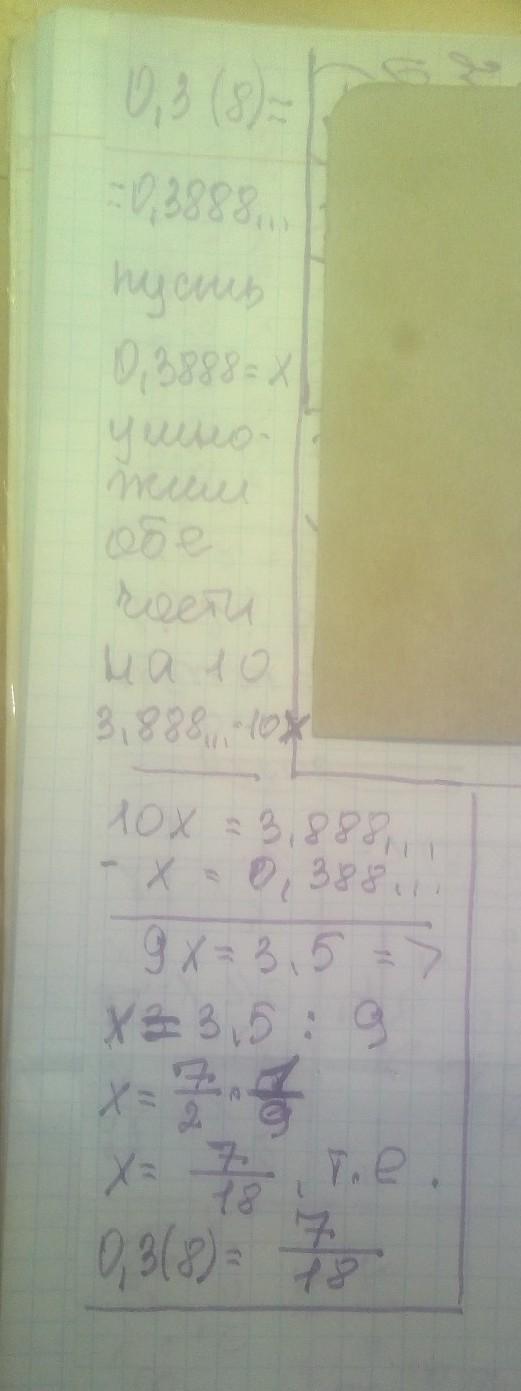 0,3(8)=
=0,3888...
пусть
0,3888=x
умно-
жим
обе
части
на 10
3,888...=10x
10x = 3,888...
- x = 0,388...
9x = 3,5 =>
x = 3,5 : 9
x = 7/2 · 1/9
x = 7/18, т.е.
0,3(8) = 7/18